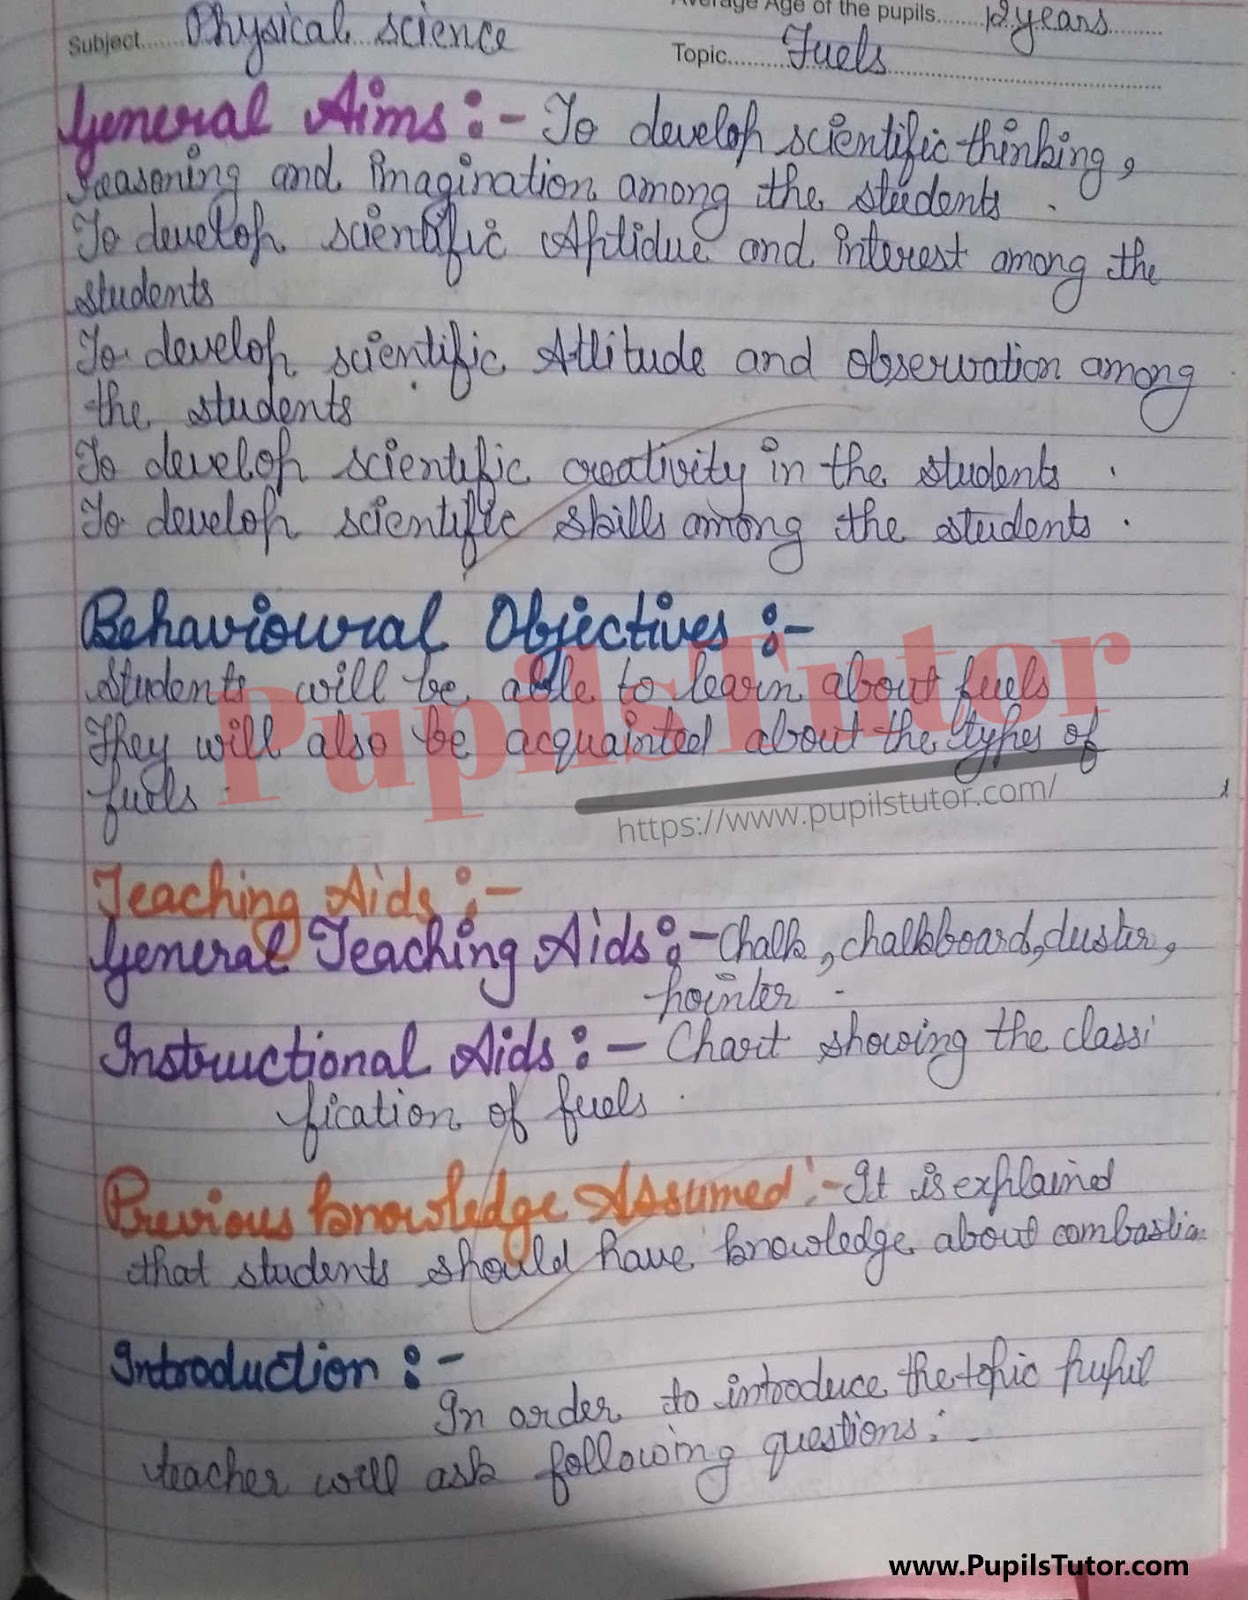 Average Age of the pupils........12 years.........
Subject......Physical science
Topic..........Fuels
General Aims :- To develop scientific thinking,
reasoning and imagination among the students .
To develop scientific Aptidue and interest among the
students
To develop scientific Attitude and observation among
the students .
To develop scientific creativity in the students .
To develop scientific skills among the students .
Behavioural Objectives :-
Students will be able to learn about fuels
They will also be acquainted about the types of
fuels .
PupilsTutor
https://www.pupilstutor.com/
Teaching Aids :-
General Teaching Aids :- Chalk, chalkboard, duster,
pointer -
Instructional Aids :- Chart showing the classi
fication of fuels .
Previous knowledge Assumed :- It is explained
that students should have knowledge about combastio
Introduction :-
In order to introduce the topic pupil
teacher will ask following questions :-
www.PupilsTutor.com